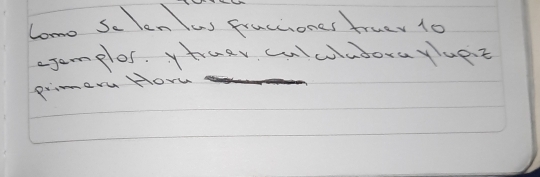 Como se len las fracciones traer 10
ejemplos. y traer calculadora y lapiz
primera Hora